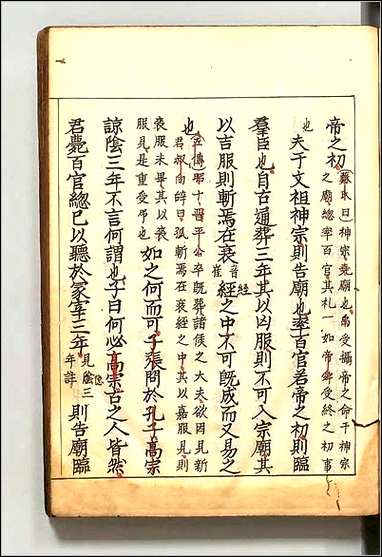 帝之初
(蘇氏曰)神宗堯廟也禹受攝帝之命于神宗
之廟總率百官其礼一如帝舜受終之初事
也
夫于文祖神宗則告廟也率百官若帝之初則臨
羣臣也自古通喪三年其以凶服則不可入宗廟其
以吉服則斬焉在衰絰之中不可既成而又易之
音崔
也
左傳昭十晋平公卒既葬諸侯之大夫欲因見新
君叔向辞曰孤斬焉在衰絰之中其以嘉服見則
喪服未畢其以衰
服見是重受弔也
如之何而可子張問於孔子高宗
諒陰三年不言何謂也子曰何必高宗古之人皆然
君薨百官總己以聽於冢宰三年
見陰三
年註
則告廟臨